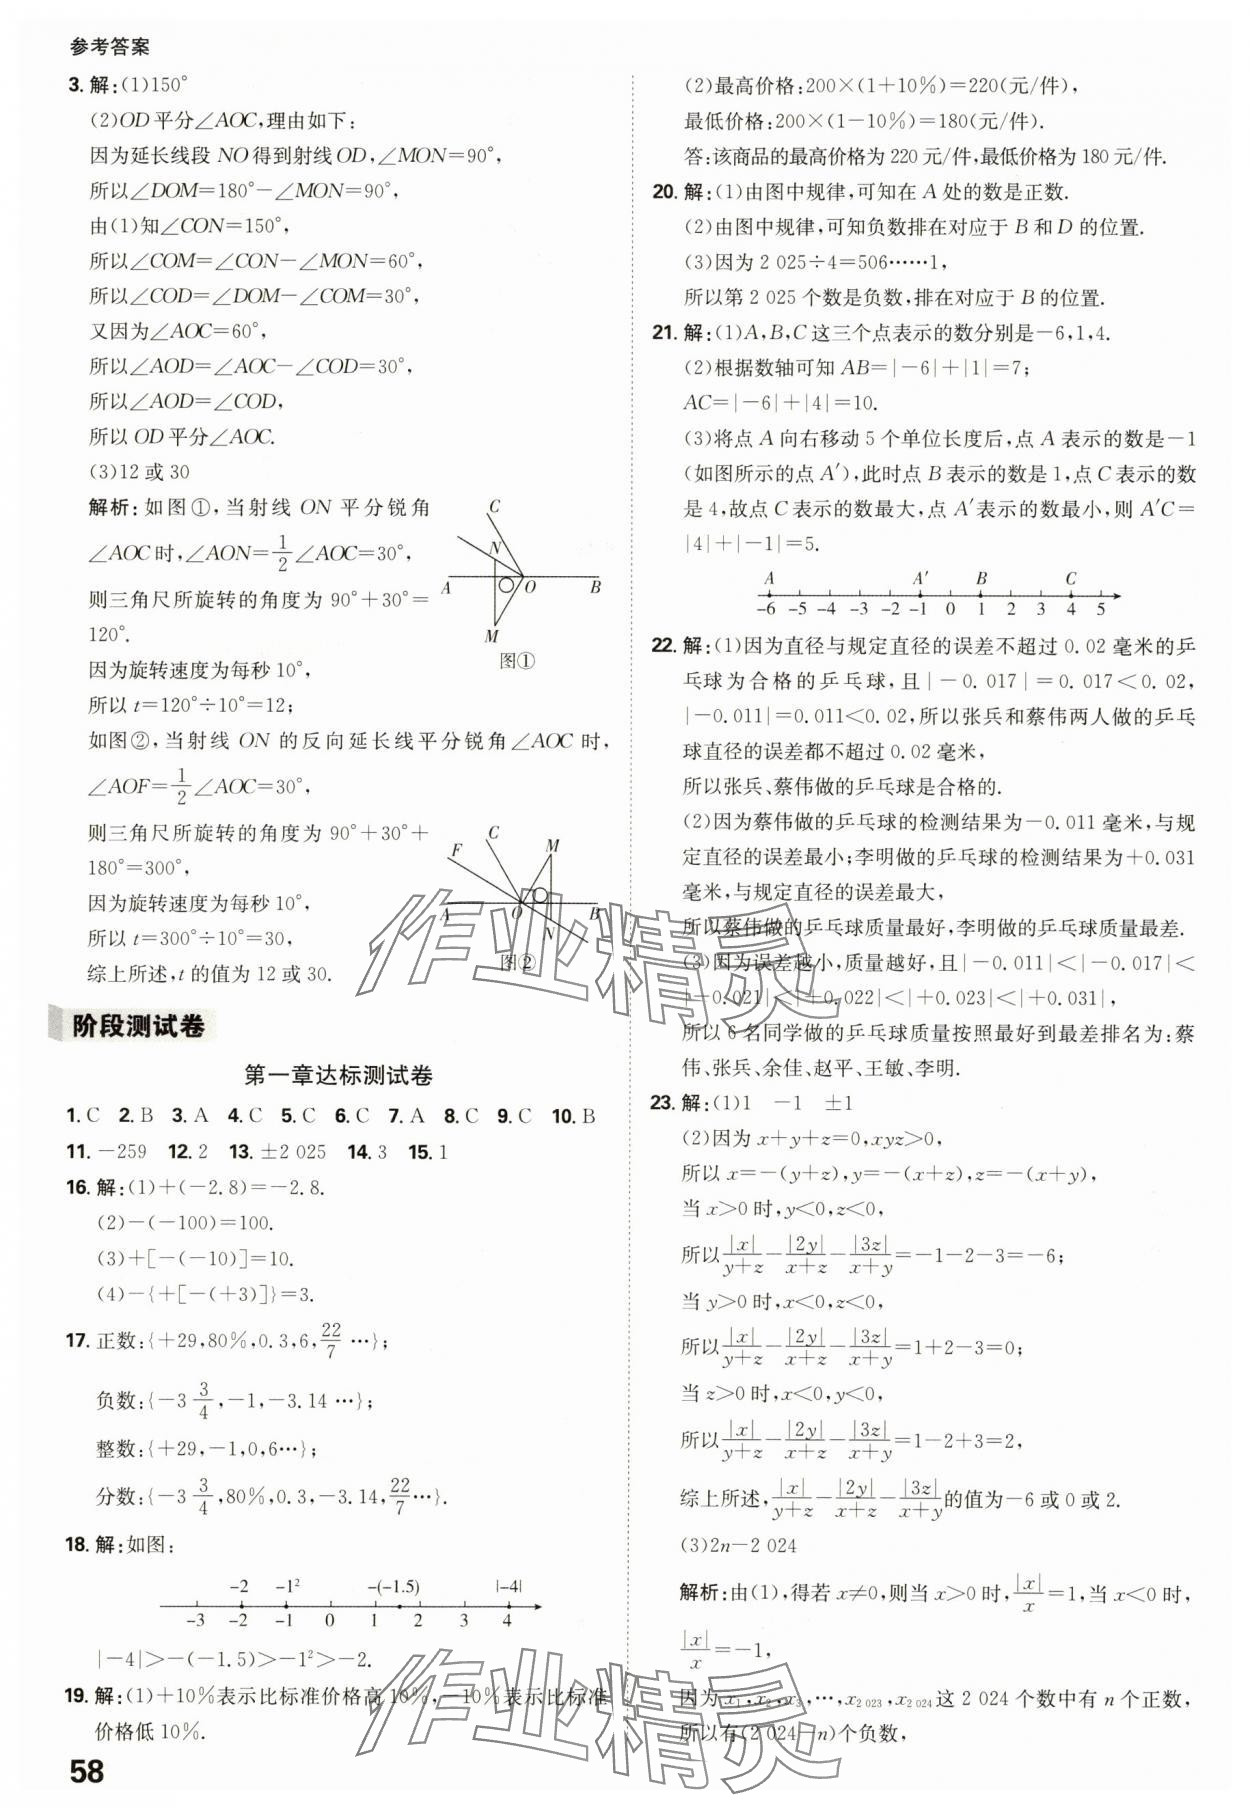 参考答案
3. 解:(1)150°
(2)OD平分∠AOC,理由如下:
因为延长线段NO得到射线OD,∠MON=90°,
所以∠DOM=180°-∠MON=90°,
由(1)知∠CON=150°,
所以∠COM=∠CON-∠MON=60°,
所以∠COD=∠DOM-∠COM=30°,
又因为∠AOC=60°,
所以∠AOD=∠AOC-∠COD=30°,
所以∠AOD=∠COD,
所以OD平分∠AOC.
(3)12或30
解析:如图①,当射线ON平分锐角
∠AOC时,∠AON=1/2∠AOC=30°,
则三角尺所旋转的角度为90°+30°=
120°.
因为旋转速度为每秒10°,
所以t=120°÷10°=12;
C
N
A O B
M
图①
如图②,当射线ON的反向延长线平分锐角∠AOC时,
∠AOF=1/2∠AOC=30°,
则三角尺所旋转的角度为90°+30°+
180°=300°,
因为旋转速度为每秒10°,
所以t=300°÷10°=30,
综上所述,t的值为12或30.
F C M
A O B
N
图②
阶段测试卷
第一章达标测试卷
1. C 2. B 3. A 4. C 5. C 6. C 7. A 8. C 9. C 10. B
11. -259 12. 2 13. ±2 025 14. 3 15. 1
16. 解:(1)+(-2.8)=-2.8.
(2)-(-100)=100.
(3)+[-(-10)]=10.
(4)-{+[-(+3)]}=3.
17. 正数:{+29,80%,0.3,6,22/7 …};
负数:{-3 3/4,-1,-3.14 …};
整数:{+29,-1,0,6…};
分数:{-3 3/4,80%,0.3,-3.14,22/7…}.
18. 解:如图:
-2 -1² -(-1.5) |-4|
-3 -2 -1 0 1 2 3 4
|-4|>-(-1.5)>-1²>-2.
19. 解:(1)+10%表示比标准价格高10%,-10%表示比标准
价格低10%.
58
(2)最高价格:200×(1+10%)=220(元/件),
最低价格:200×(1-10%)=180(元/件).
答:该商品的最高价格为220元/件,最低价格为180元/件.
20. 解:(1)由图中规律,可知在A处的数是正数.
(2)由图中规律,可知负数排在对应于B和D的位置.
(3)因为2 025÷4=506……1,
所以第2 025个数是负数,排在对应于B的位置.
21. 解:(1)A,B,C这三个点表示的数分别是-6,1,4.
(2)根据数轴可知AB=|-6|+|1|=7;
AC=|-6|+|4|=10.
(3)将点A向右移动5个单位长度后,点A表示的数是-1
(如图所示的点A′),此时点B表示的数是1,点C表示的数
是4,故点C表示的数最大,点A′表示的数最小,则A′C=
|4|+|-1|=5.
A A′ B C
-6 -5 -4 -3 -2 -1 0 1 2 3 4 5
22. 解:(1)因为直径与规定直径的误差不超过0.02毫米的乒
乓球为合格的乒乓球,且|-0.017|=0.017<0.02,
|-0.011|=0.011<0.02,所以张兵和蔡伟两人做的乒乓
球直径的误差都不超过0.02毫米,
所以张兵、蔡伟做的乒乓球是合格的.
(2)因为蔡伟做的乒乓球的检测结果为-0.011毫米,与规
定直径的误差最小;李明做的乒乓球的检测结果为+0.031
毫米,与规定直径的误差最大,
所以蔡伟做的乒乓球质量最好,李明做的乒乓球质量最差.
(3)因为误差越小,质量越好,且|-0.011|<|-0.017|<
|-0.021|<|+0.022|<|+0.023|<|+0.031|,
所以6名同学做的乒乓球质量按照最好到最差排名为:蔡
伟、张兵、余佳、赵平、王敏、李明.
23. 解:(1)1 -1 ±1
(2)因为x+y+z=0,xyz>0,
所以x=-(y+z),y=-(x+z),z=-(x+y),
当x>0时,y<0,z<0,
所以|x|/(y+z)-|2y|/(x+z)-|3z|/(x+y)=-1-2-3=-6;
当y>0时,x<0,z<0,
所以|x|/(y+z)-|2y|/(x+z)-|3z|/(x+y)=1+2-3=0;
当z>0时,x<0,y<0,
所以|x|/(y+z)-|2y|/(x+z)-|3z|/(x+y)=1-2+3=2,
综上所述,|x|/(y+z)-|2y|/(x+z)-|3z|/(x+y)的值为-6或0或2.
(3)2n-2 024
解析:由(1),得若x≠0,则当x>0时,|x|/x=1,当x<0时,
|x|/x=-1,
因为x₁,x₂,x₃,…,x₂₀₂₃,x₂₀₂₄这2 024个数中有n个正数,
所以有(2 024-n)个负数,
作业精灵
作业精灵